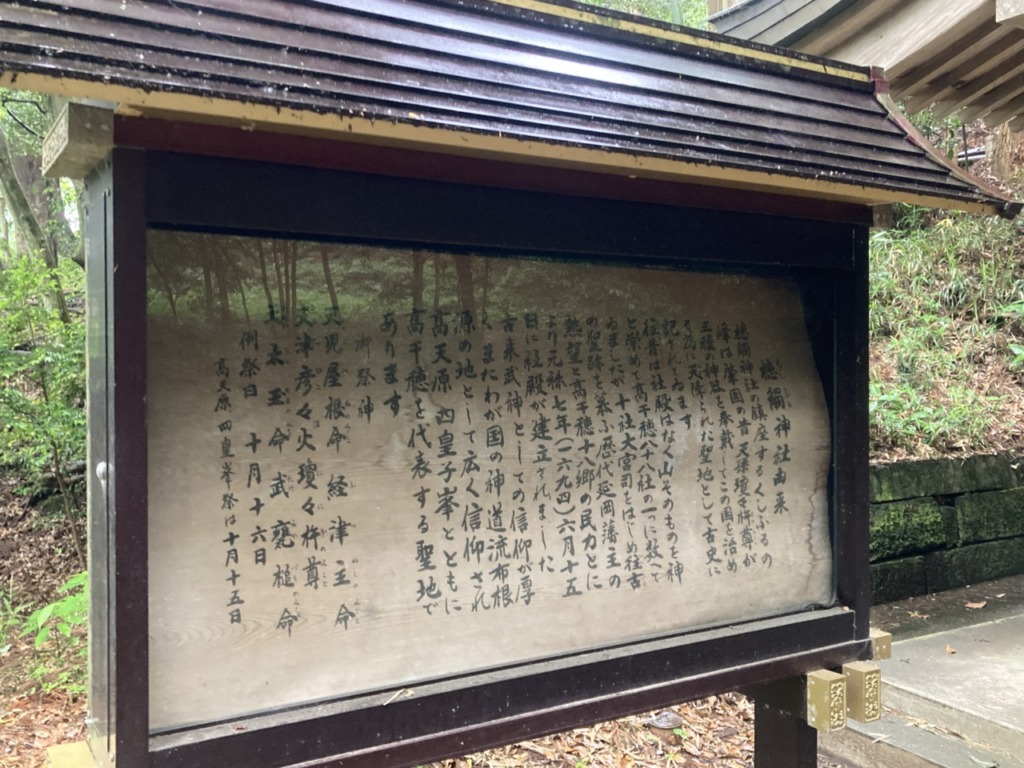 槵觸神社由来
槵觸神社の鎮座するくしふるの
峰は肇国の昔天孫瓊々杵尊が
三種の神器を奉戴してこの国を治め
るために天降られた聖地として古史に
記されてゐます
往昔は社殿はなく山そのものを神
と崇めて高千穂八十八社の一つに数へて
ゐましたが十社大宮司をはじめ往古
の聖跡を慕ふ歴代延岡藩主の
熱望と高千穂十八郷の民力とに
より元禄七年(一六九四)六月十五
日に社殿が建立されました
古来武神としての信仰が厚
くまたわが国の神道流布根
源の地として広く信仰され
高天原四皇子峯とともに
高千穂を代表する聖地で
あります
御祭神
天児屋根命 経津主命
天津彦々火瓊々杵尊
天太玉命 武甕槌命
例祭日 十月十六日
高天原四皇峯祭は十月十五日